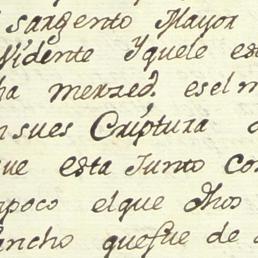 sargento Mayor
Vidente Yquele est
ha merzed. es el m
n sues Criptura
ue esta Junto con
poco elque dhos
ancho quefue de